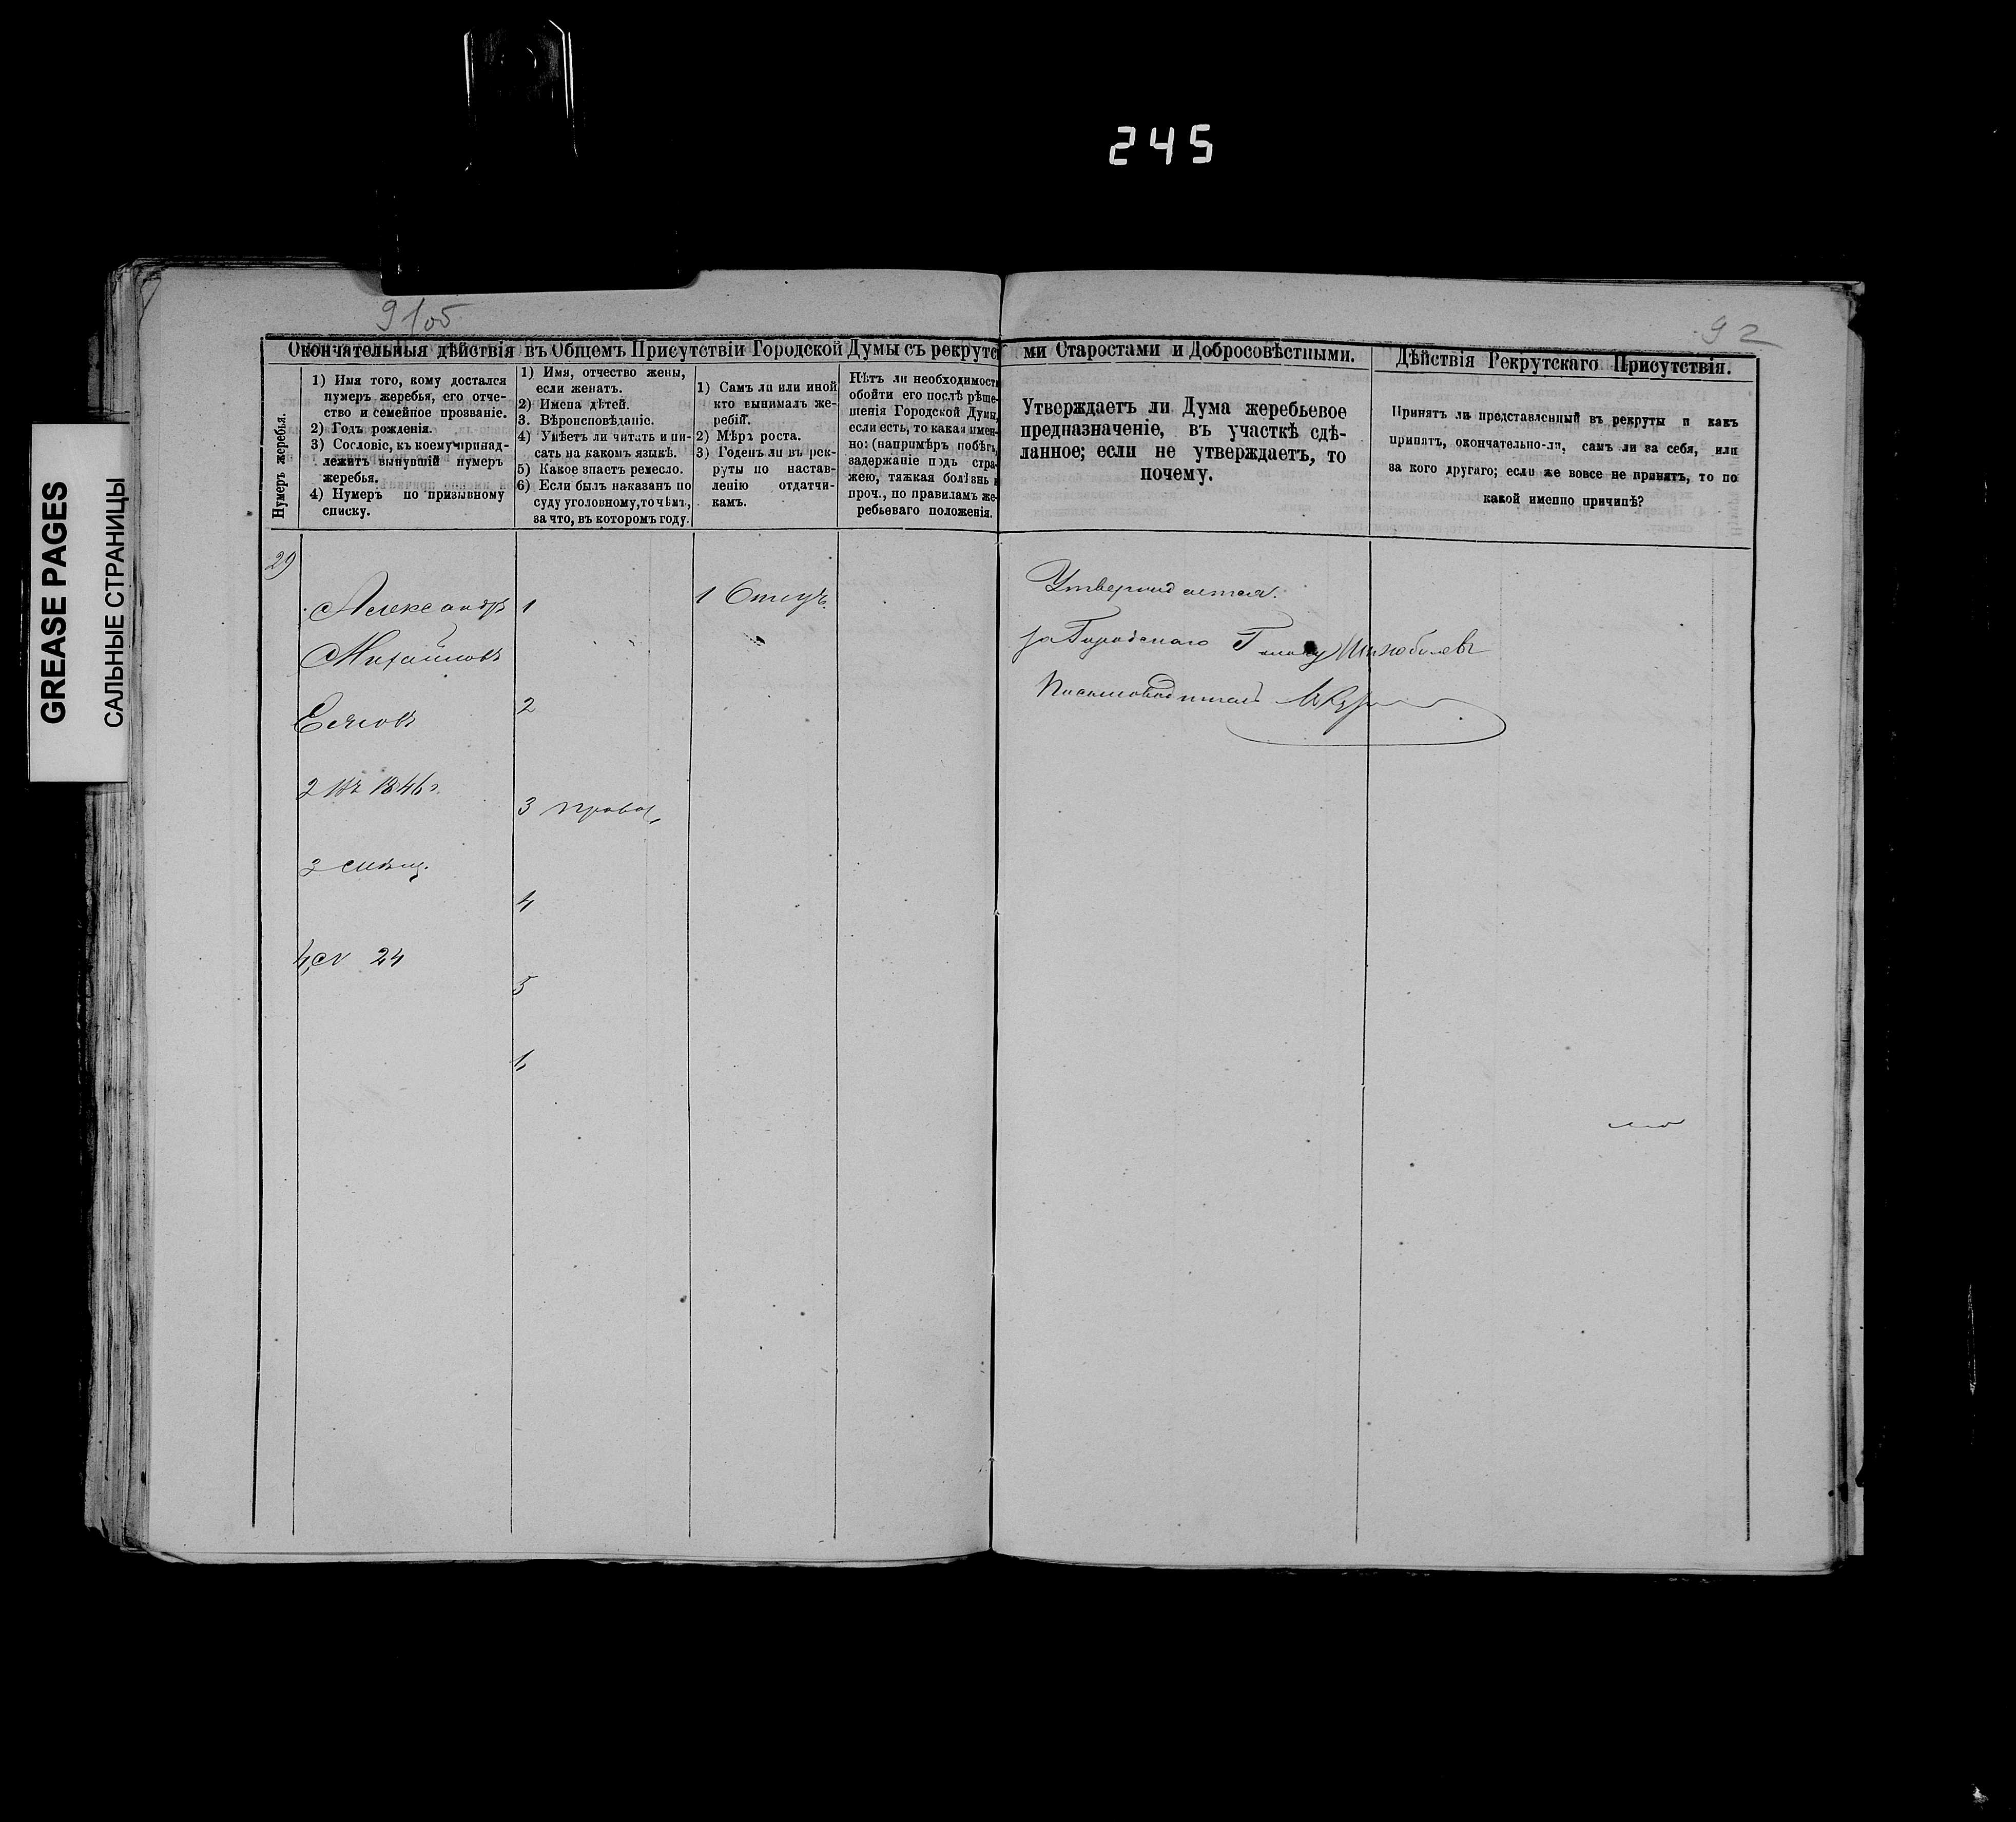 245
GREASE PAGES
САЛЬНЫЕ СТРАНИЦЫ
91об
92
Окончательныя дѣйствія въ Общемъ Присутствіи Городской Думы съ рекрутс
ми Старостами и Добросовѣстными.
Дѣйствія Рекрутскаго Присутствія.
Нумеръ жеребья.
1) Имя того, кому достался
нумеръ жеребья, его отче-
ство и семейное прозваніе.
2) Годъ рожденія.
3) Сословіе, къ коему принад-
лежитъ вынувшій нумеръ
жеребья.
4) Нумеръ по призывному
списку.
1) Имя, отчество жены,
если женатъ.
2) Имена дѣтей.
3. Вѣроисповѣданіе.
4) Умѣетъ ли читать и пи-
сать на какомъ языкѣ.
5) Какое знаетъ ремесло.
6) Если былъ наказанъ по
суду уголовному, то чѣмъ,
за что, въ которомъ году.
1) Самъ ли или иной
кто вынималъ же-
ребій.
2) Мѣра роста.
3) Годенъ ли въ рек-
руты по настав-
ленію отдатчи-
камъ.
Нѣтъ ли необходимости
обойти его послѣ рѣше-
шенія Городской Думы,
если есть, то какая имен-
но: (напримѣръ побѣгъ,
задержаніе подъ стра-
жею, тяжкая болѣзнь и
проч., по правиламъ же-
ребьеваго положенія.
Утверждаетъ ли Дума жеребьевое
предназначеніе, въ участкѣ сдѣ-
ланное; если не утверждаетъ, то
почему.
Принятъ ли представленный въ рекруты и какъ
принятъ, окончательно-ли, самъ ли за себя, или
за кого другаго; если же вовсе не принятъ, то по
какой именно причинѣ?
29
Александръ
Михайловъ
2 Въ 1846 г.
3
4, № 24
1
2
3 Правос.
4
5
6
1 Отецъ.
Утверждается.
За Городскаго Голову
Письмоводитель